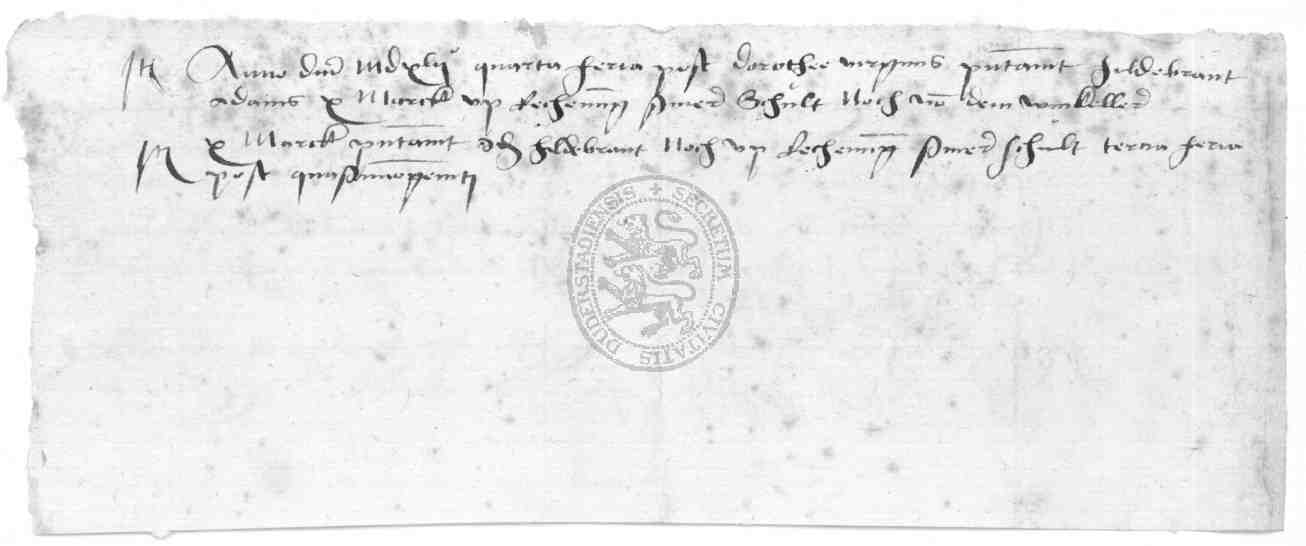 It Anno dm̄ Mdxlij quarta feria post dorothee virginis pn̄tauit hildebrant
adams x Marck vp Rechenūg syner Schult Noch vō dem winkeller
It x Marck pn̄tauit hildebrant Noch vp Rechenūg syner schult tercia feria
post quasimogeniti
SECRETUM CIVITATIS DUDERSTADIENSIS